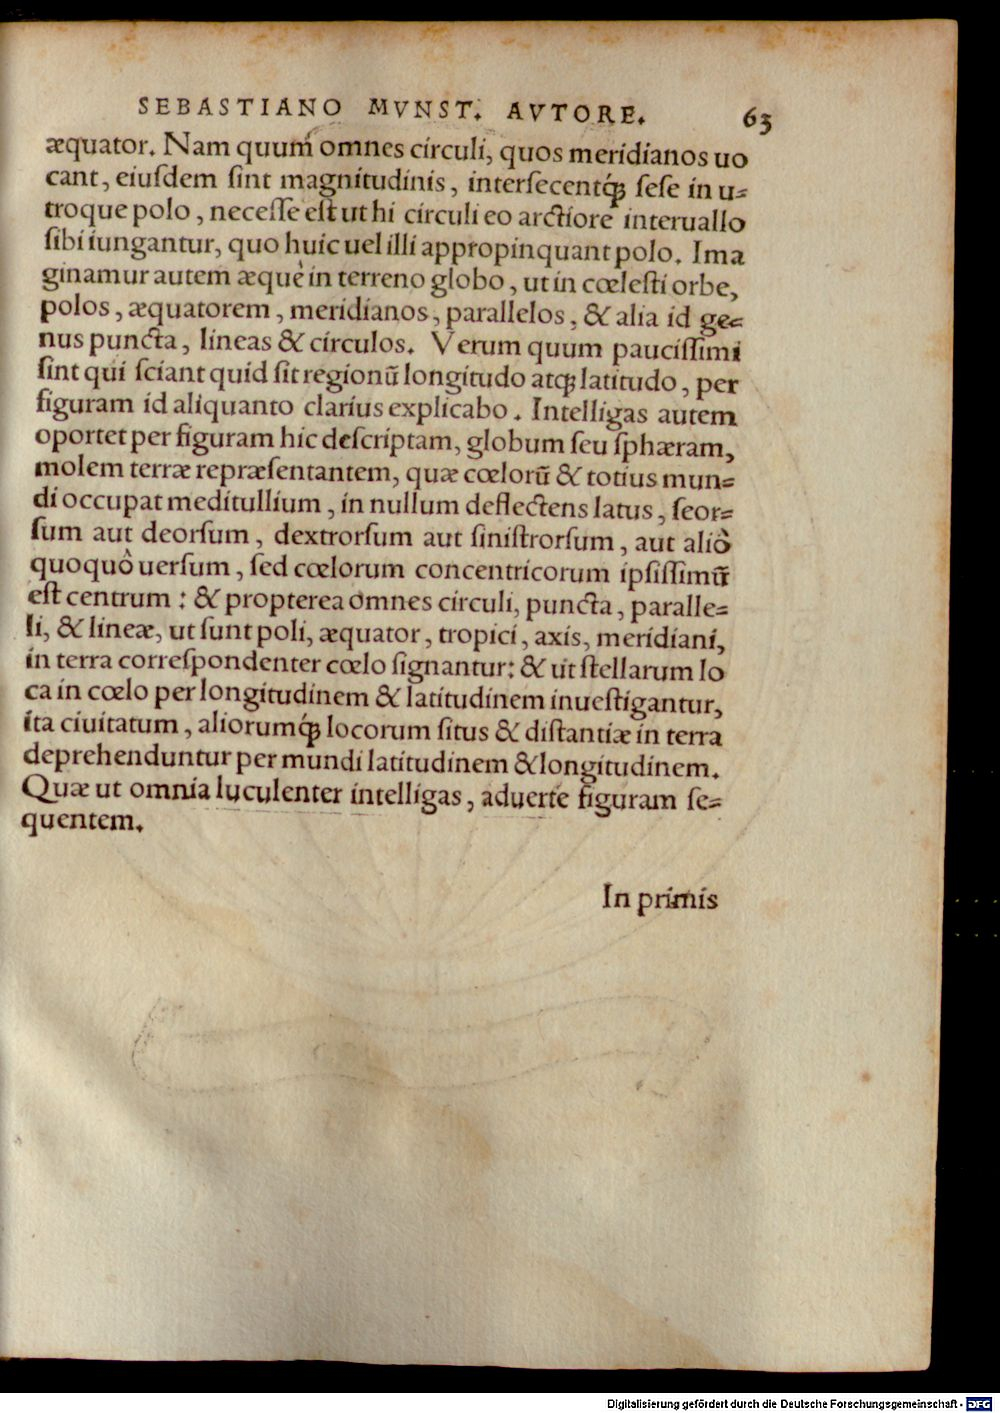 SEBASTIANO MVNST. AVTORE. 63
æquator. Nam quum omnes circuli, quos meridianos uo
cant, eiuſdem ſint magnitudinis, interſecentqꝫ ſeſe in u⸗
troque polo, neceſſe eſt ut hi circuli eo arctiore interuallo
ſibi iungantur, quo huic uel illi appropinquant polo. Ima
ginamur autem æquè in terreno globo, ut in cœleſti orbe,
polos, æquatorem, meridianos, parallelos, & alia id ge⸗
nus puncta, lineas & circulos. Verum quum pauciſſimi
ſint qui ſciant quid ſit regionū longitudo atqꝫ latitudo, per
figuram id aliquanto clarius explicabo. Intelligas autem
oportet per figuram hic deſcriptam, globum ſeu ſphæram,
molem terræ repræſentantem, quæ cœlorū & totius mun⸗
di occupat meditullium, in nullum deflectens latus, ſeor⸗
ſum aut deorſum, dextrorſum aut ſiniſtrorſum, aut aliò
quoquò uerſum, ſed cœlorum concentricorum ipſiſſimū
eſt centrum: & propterea omnes circuli, puncta, paralle⸗
li, & lineæ, ut ſunt poli, æquator, tropici, axis, meridiani,
in terra correſpondenter cœlo ſignantur: & ut ſtellarum lo
ca in cœlo per longitudinem & latitudinem inueſtigantur,
ita ciuitatum, aliorumqꝫ locorum ſitus & diſtantiæ in terra
deprehenduntur per mundi latitudinem & longitudinem.
Quæ ut omnia luculenter intelligas, aduerte figuram ſe⸗
quentem.
In primis
Digitalisierung gefördert durch die Deutsche Forschungsgemeinschaft - DFG